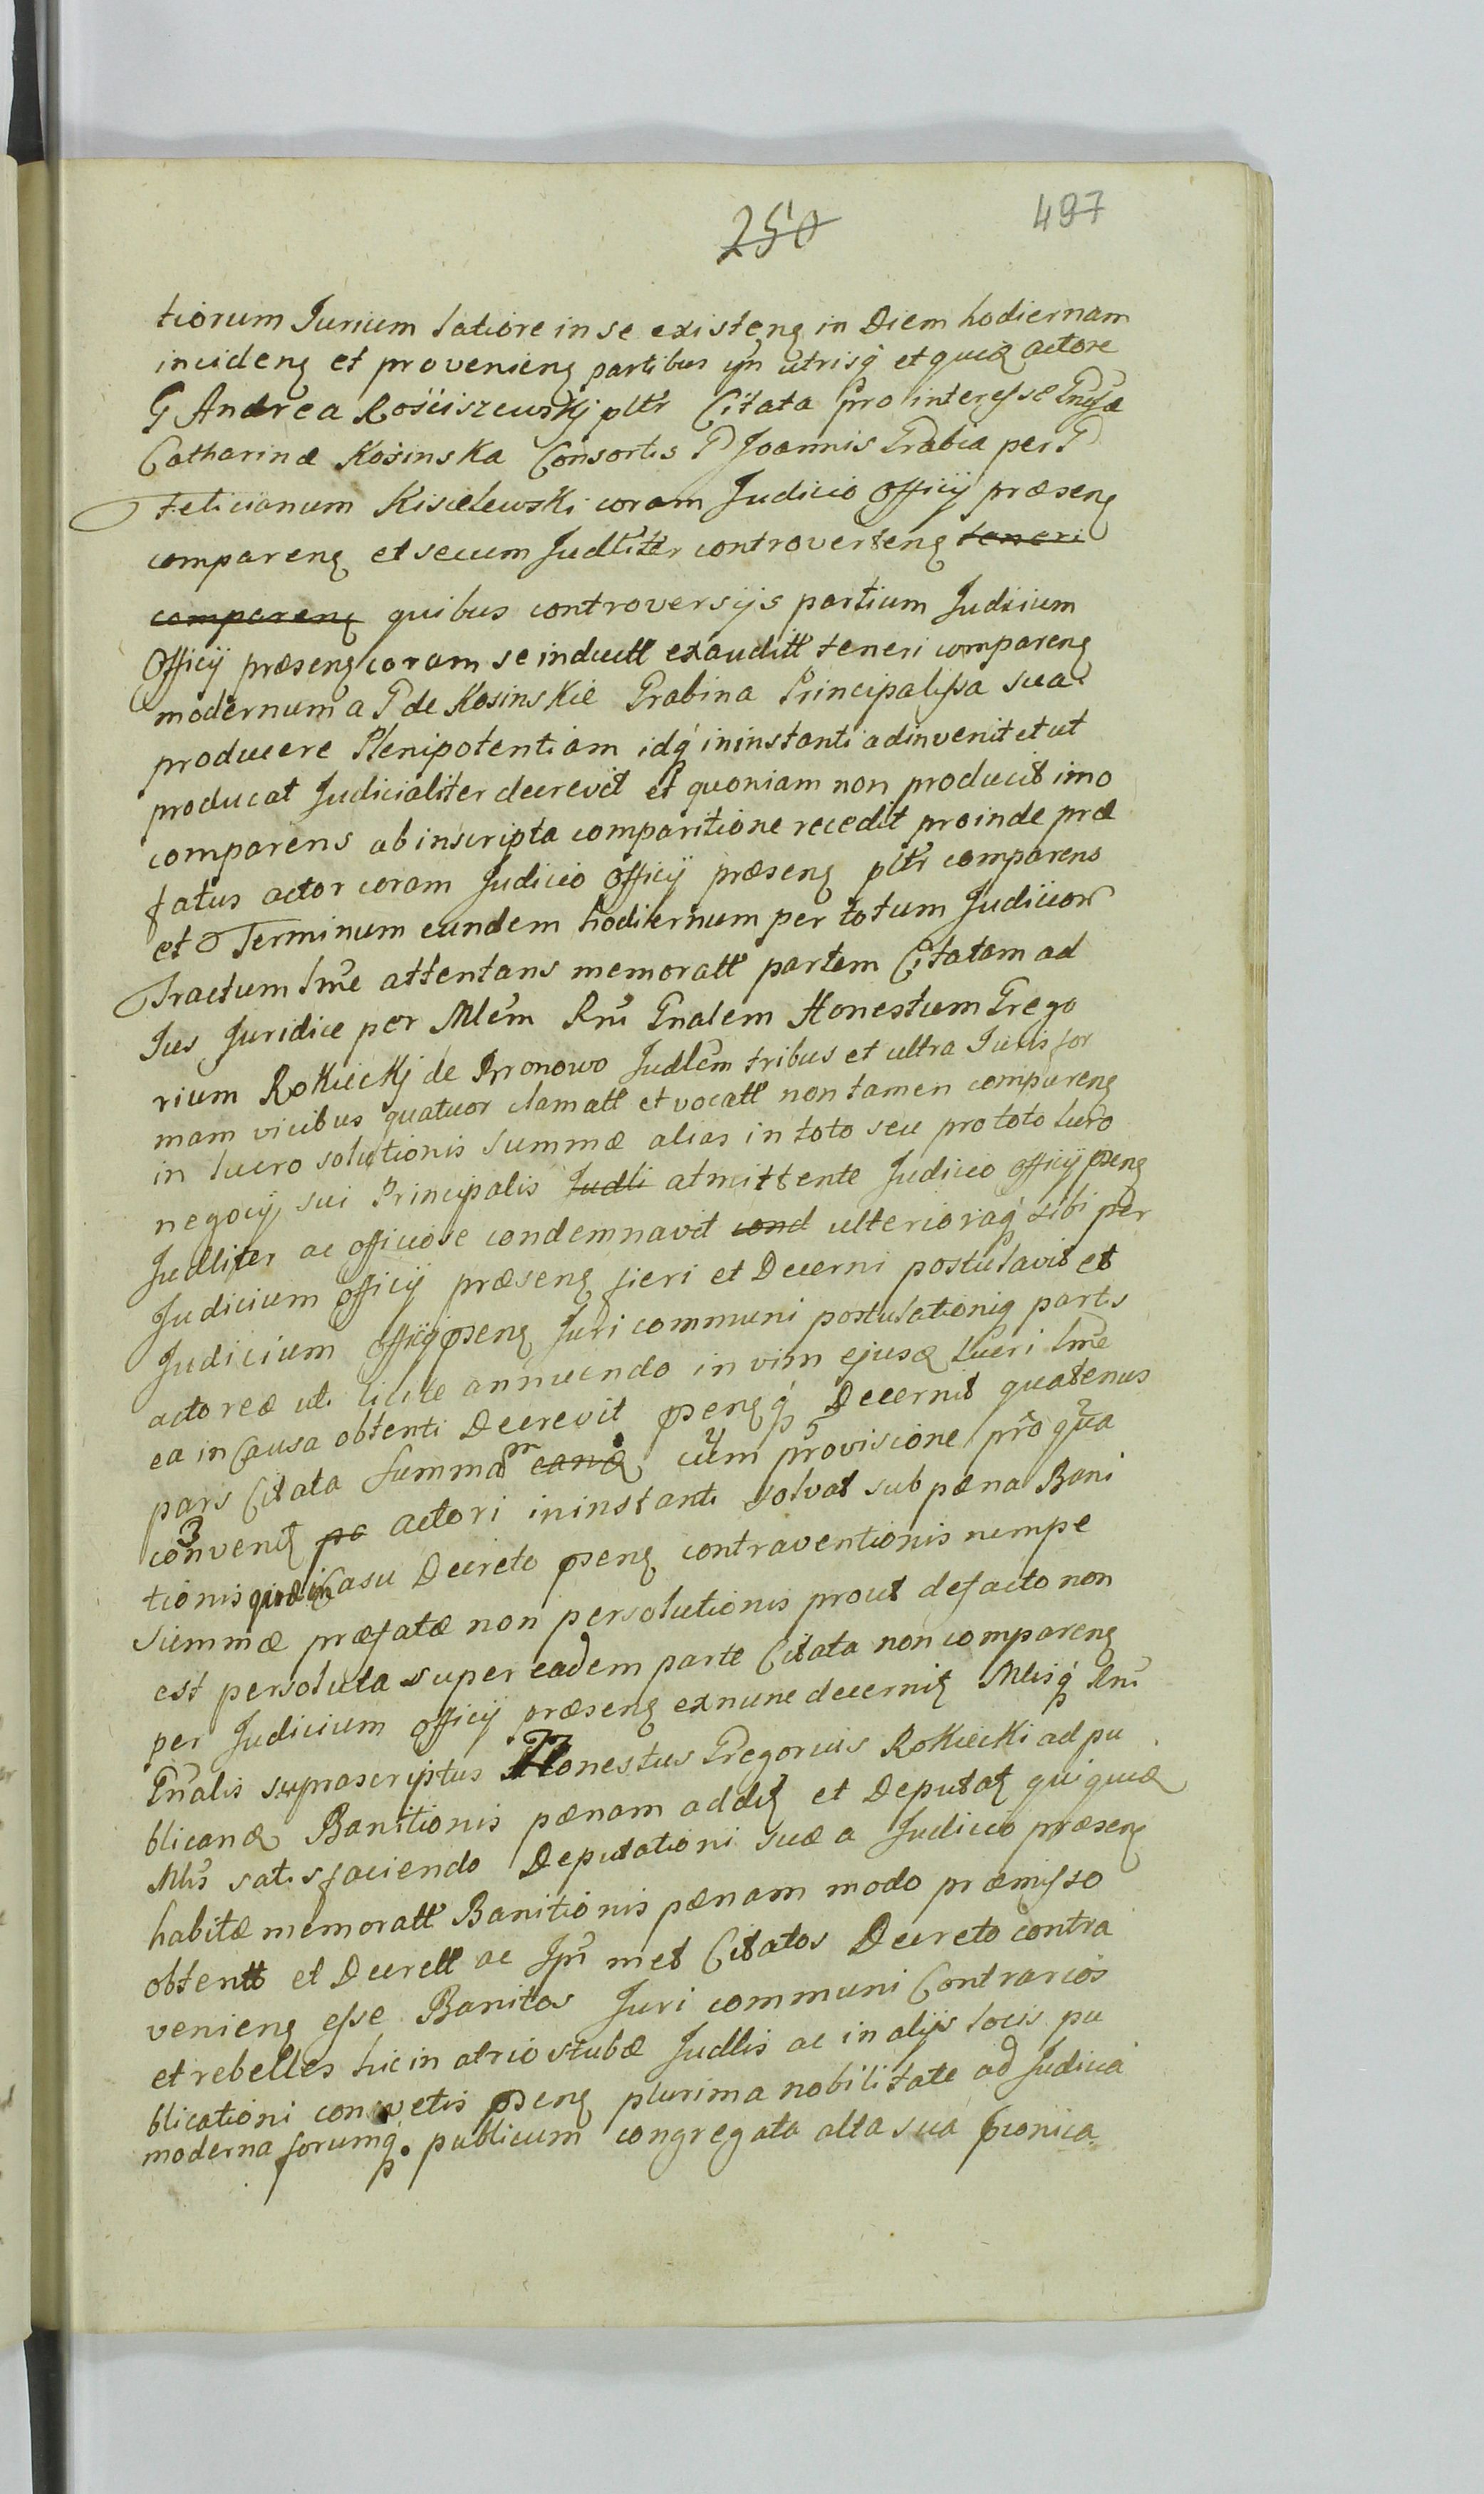 250
497
tiorum Jurium latiore in se existenȝ in Diem hodiernam
incidenȝ et provenienȝ partibus ijn utrisq́ et quidȝ actore
G Andrea Rościszewskj pltr Citata pro interesse Gnsæ
Catharinæ Kosinska Consortis G Joannis Grabia per G
Felicianum Kisielewski coram Judicio Officij præsenȝ
comparenȝ et secum Judlitr controvertenȝ teneri
comparenȝ quibus controversijs partium Judicium
Officij præsenȝ coram se inductt exauditt teneri comparenȝ
modernum a G de Kosinskie Grabina Principalissa sua
producere Plenipotentiam idq́ ininstanti adinvenit et ut
producat Judicialiter decrevit et quoniam non producit imo
comparens ab inscripta comparitione recedit proinde præ
fatus actor coram Judicio Officij præsenȝ pltr comparens
et Terminum eundem hodiernum per totum Judicior
Tractum lme attentans memoratt partem Citatam ad
Jus Juridice per Mlem Rni Gnalem Honestum Grego
rium Rokickj de Pronowo Judlem tribus et ultra Juris for
mam vicibus quatuor clamatt et vocatt non tamen comparenȝ
in lucro solutionis summæ alias in toto seu pro toto lucro
negocij sui Principalis Judli atmittente Judicio Officij psenȝ
Judliter ac officiose condemnavit cond ulterioraq́ sibi per
Judicium officij præsenȝ fieri et Decerni postulavit et
Judicium Officij psenȝ Juri communi postulationiq́ partis
actoreæ uti licite annuendo in vim ejusdȝ lucri lme
ea in Causa obtenti Decrevit psenȝq́ Decernit quatenus
pars Citata summam eandȝ cum provisione pro qua
convenit pa actori ininstanti solvat sub pæna Bani
tionis quæ in Casu Decreto psenȝ contraventionis nempe
summæ præfatæ non persolutionis prout defacto non
est persoluta super eadem parte Citata non comparenȝ
per Judicium officij præsenȝ exnunc decernitȝ Mlisq́ Rni
Gnalis suprascriptus Honestus Gregorius Rokicki ad pu
blicandȝ Banitionis pænam additȝ et Deputatȝ qui quidȝ
Mlis satisfaciendo Deputationi suæ a Judicio præsenȝ
habitæ memoratt Banitionis pænam modo præmisso
obtentt et Decrett ac Jpsi met Citatos Decreto contra
venienȝ esse Banitos Juri communi Contrarios
et rebelles hic in atrio stubæ Judlis ac in alijs locis pu
blicationi consvetis psenȝ plurima nobilitate ad Judicia
moderna forumq́. publicum congregata alta sua pconica